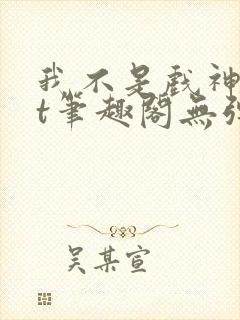 我不是戲神
t筆趣閣無彈
吳某宣